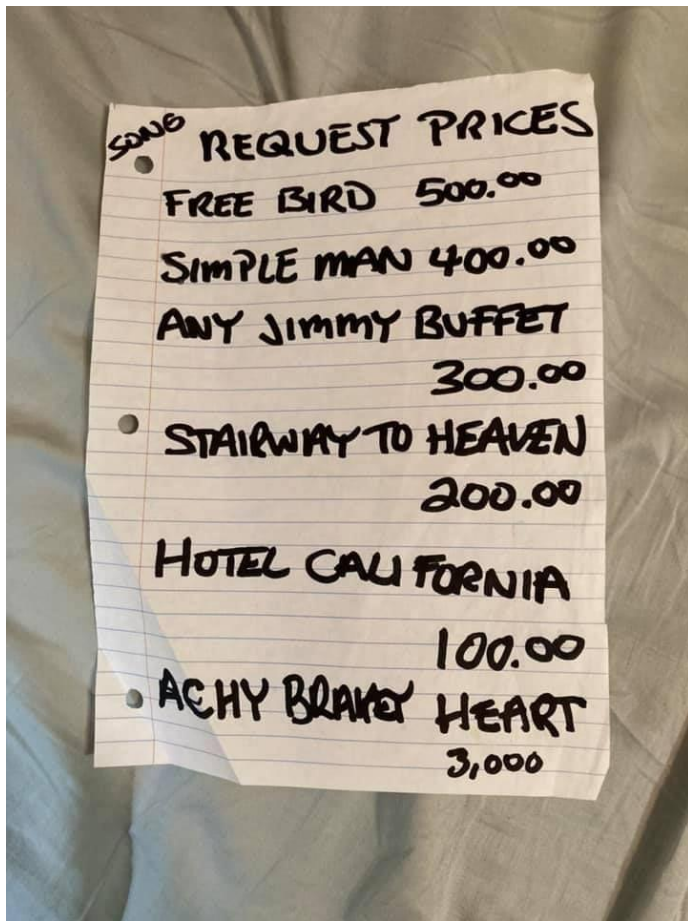 SONG REQUEST PRICES
FREE BIRD 500.00
SIMPLE MAN 400.00
ANY JIMMY BUFFET
300.00
STAIRWAY TO HEAVEN
200.00
HOTEL CALIFORNIA
100.00
ACHY BRAKEY HEART
3,000